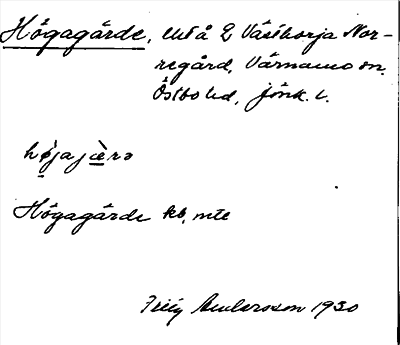 Högagärde, utå 2 Västhorja Nor-
regård, Värnamo sn.
Östbo hd, Jönk. l.
højajærə
Högagärde kb, mtl
Andersson 1930